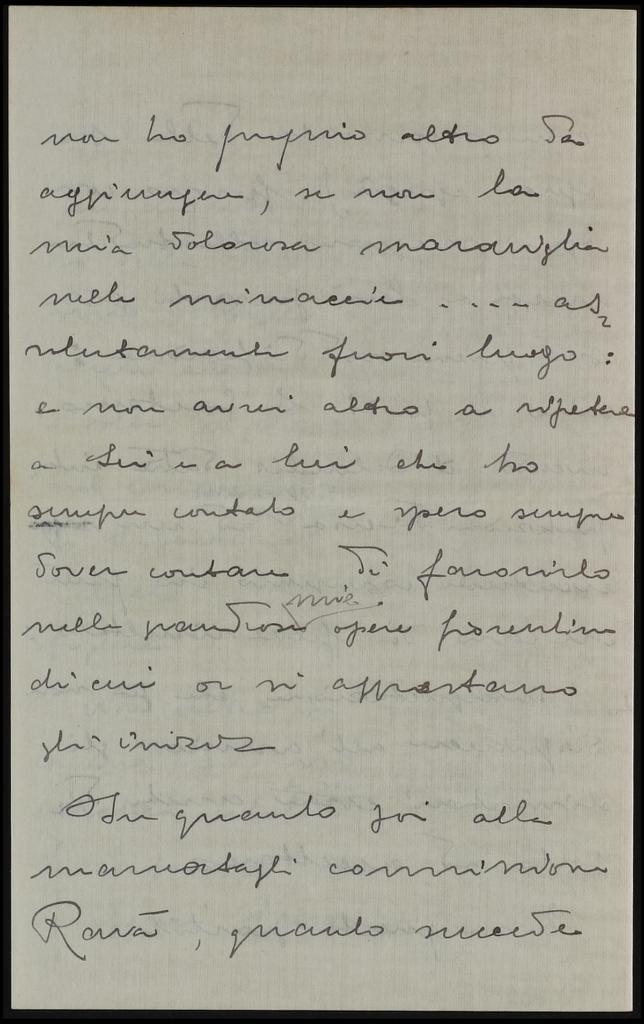 non ho proprio altro da
aggiungere, se non la
mia dolorosa maraviglia
nelle minaccie .... as=
solutamente fuori luogo:
e non avrei altro a ripetere
a Lei e a lui che ho
sempre contato e spero sempre
dover contare di favorirlo
nelle grandiose mie opere fiorentine
di cui or si appostano
gli inizi
In quanto poi alla
mancatagli commissione
Ravà, quanto succede